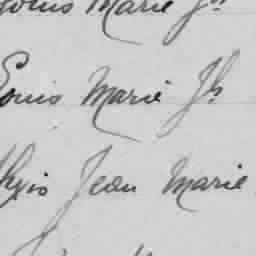 Louis Marie Jh
Louis Marie Jh
Jean Marie